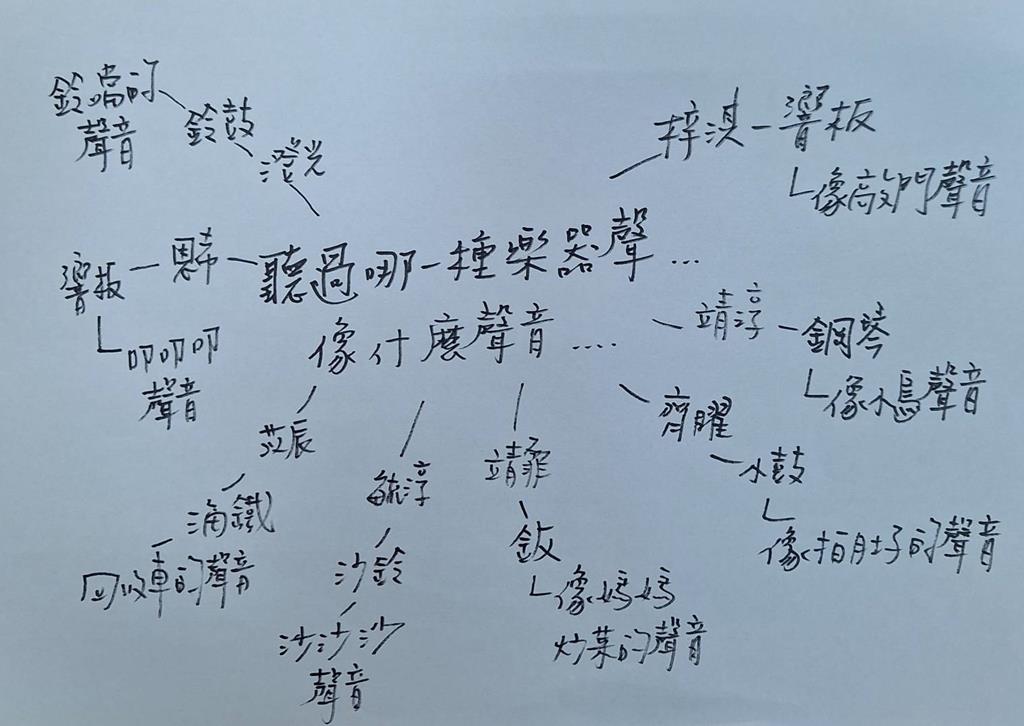 聽過哪一種樂器聲...
像什麼聲音....
澄光
鈴鼓
鈴噹的
聲音
梓淇－響板
像敲門聲音
恩希
響板
叩叩叩
聲音
靖淳－鋼琴
像小鳥聲音
齊曜
小鼓
像拍肚子的聲音
靖霏
鈸
像媽媽
炒菜的聲音
毓淳
沙鈴
沙沙沙
聲音
苡辰
回收車的聲音